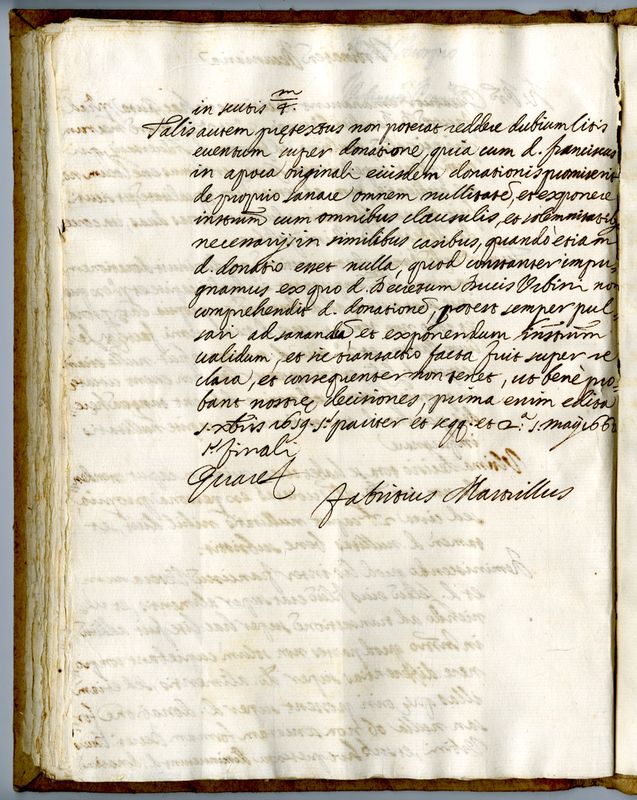 in scutis m/4.
Talis autem prętextus non poterat reddere dubium litis
euentum super donatione, quia cum d. franciscus
in apoca originali eiusdem donationis promiserit
de proprio sanare omnem nullitatē, et exponere
instrūm cum omnibus clausulis, et solemnitatib⁹
necessarijs in similibus casibus, quando etiam
d. donatio esset nulla, quod constanter impu
gnamus ex quo d. Decretum Ducis Urbini non
comprehendit d. donationē, potest semper pul
sari ad sanandā, et exponendum instrūm
ualidum, et sic transactio facta fuit super re
clara, et consequenter non tenet, ut benè pro
bant nostrę decisiones, prima enim edita
s. xbris 1659. §. pariter et seqq. et 2.ª s. maij 166
§. finali
Quare &
fabritius